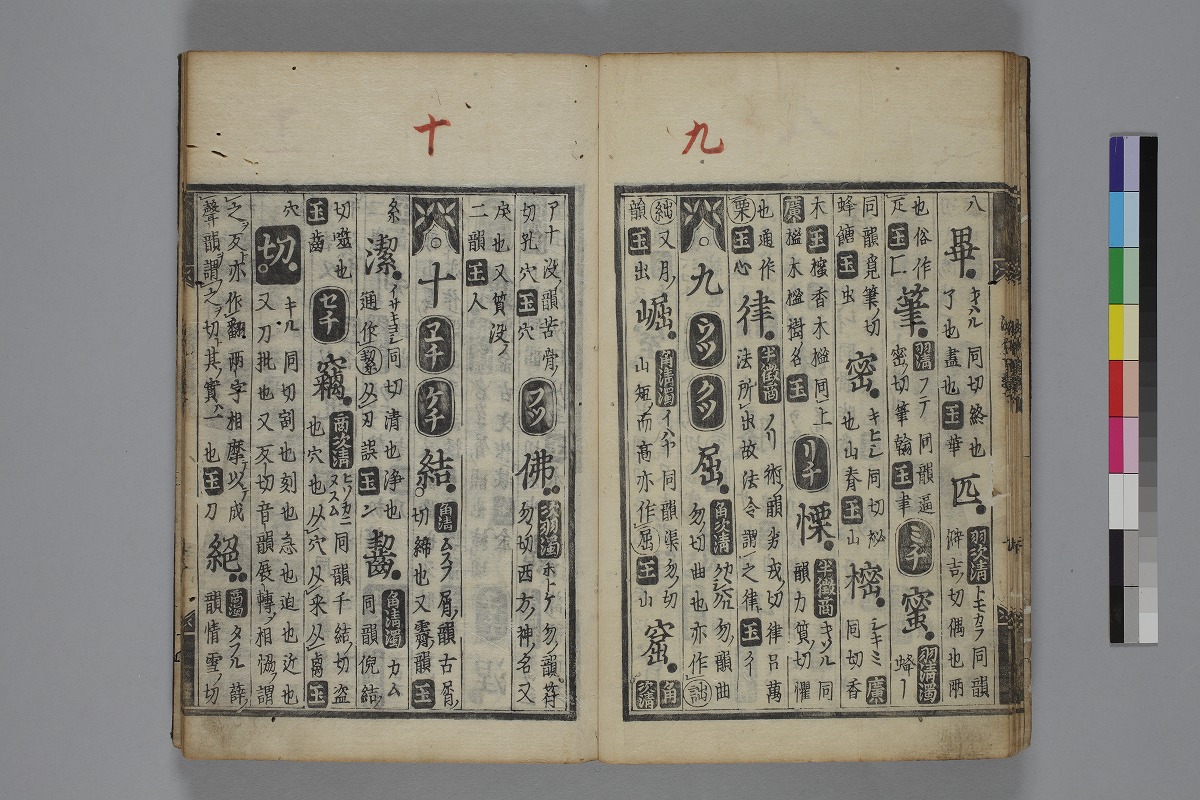 九
八
畢 キハル 同切終也
了也盡也玉華
匹 羽次清 トモカラ 同韻
譬吉切偶也兩
也俗作疋玉匚
筆 羽清 フテ 同韻逼
密切筆翰玉聿
ミチ
蜜 羽清濁 蜂
同韻覓筆切
蜂餹玉虫
密 キヒシ 同切
也山脊玉山
樒 シキミ 廣 同切香
木玉櫁香木櫁同上
廣櫁木櫁樹名玉
リチ
慄 半徵商 キソル 同
韻力質切懼
也通作栗玉心
律 半徵商 ノリ 術韻劣戌切律呂萬
法所出故法令謂之律玉彳
九 ウツ クツ
屈 角次清 勿韻曲
勿切曲也亦作詘
絀又月韻玉出
崛 角清濁 同韻渠勿切
山短而高亦作屈玉山
窟 角次清
十
没韻苦骨
切乳穴玉穴
フツ
佛 次羽濁 ホトケ 勿韻符
勿切西方神名又
戾也又質没
二韻玉人
十 ヱチ ケチ
結 角清 ムスフ 屑韻古屑
切締也又霽韻玉
糸
潔 イサキヨシ 同切清也浄也
通作絜从刃誤玉
齧 角清濁 カム
同韻倪結
切噬也
玉齒
セチ
竊 商次清 ヒソカニ ヌスム 同韻千結切盗
也穴也从穴从米从卨玉
穴
切 キル 同切割也刻也急也迫也近也
又刀批也又反切音韻展轉相恊謂
之反亦作翻兩字相摩以成
聲韻謂之切其實一也玉刀
絕 商濁 タフル 薛
韻情雪切